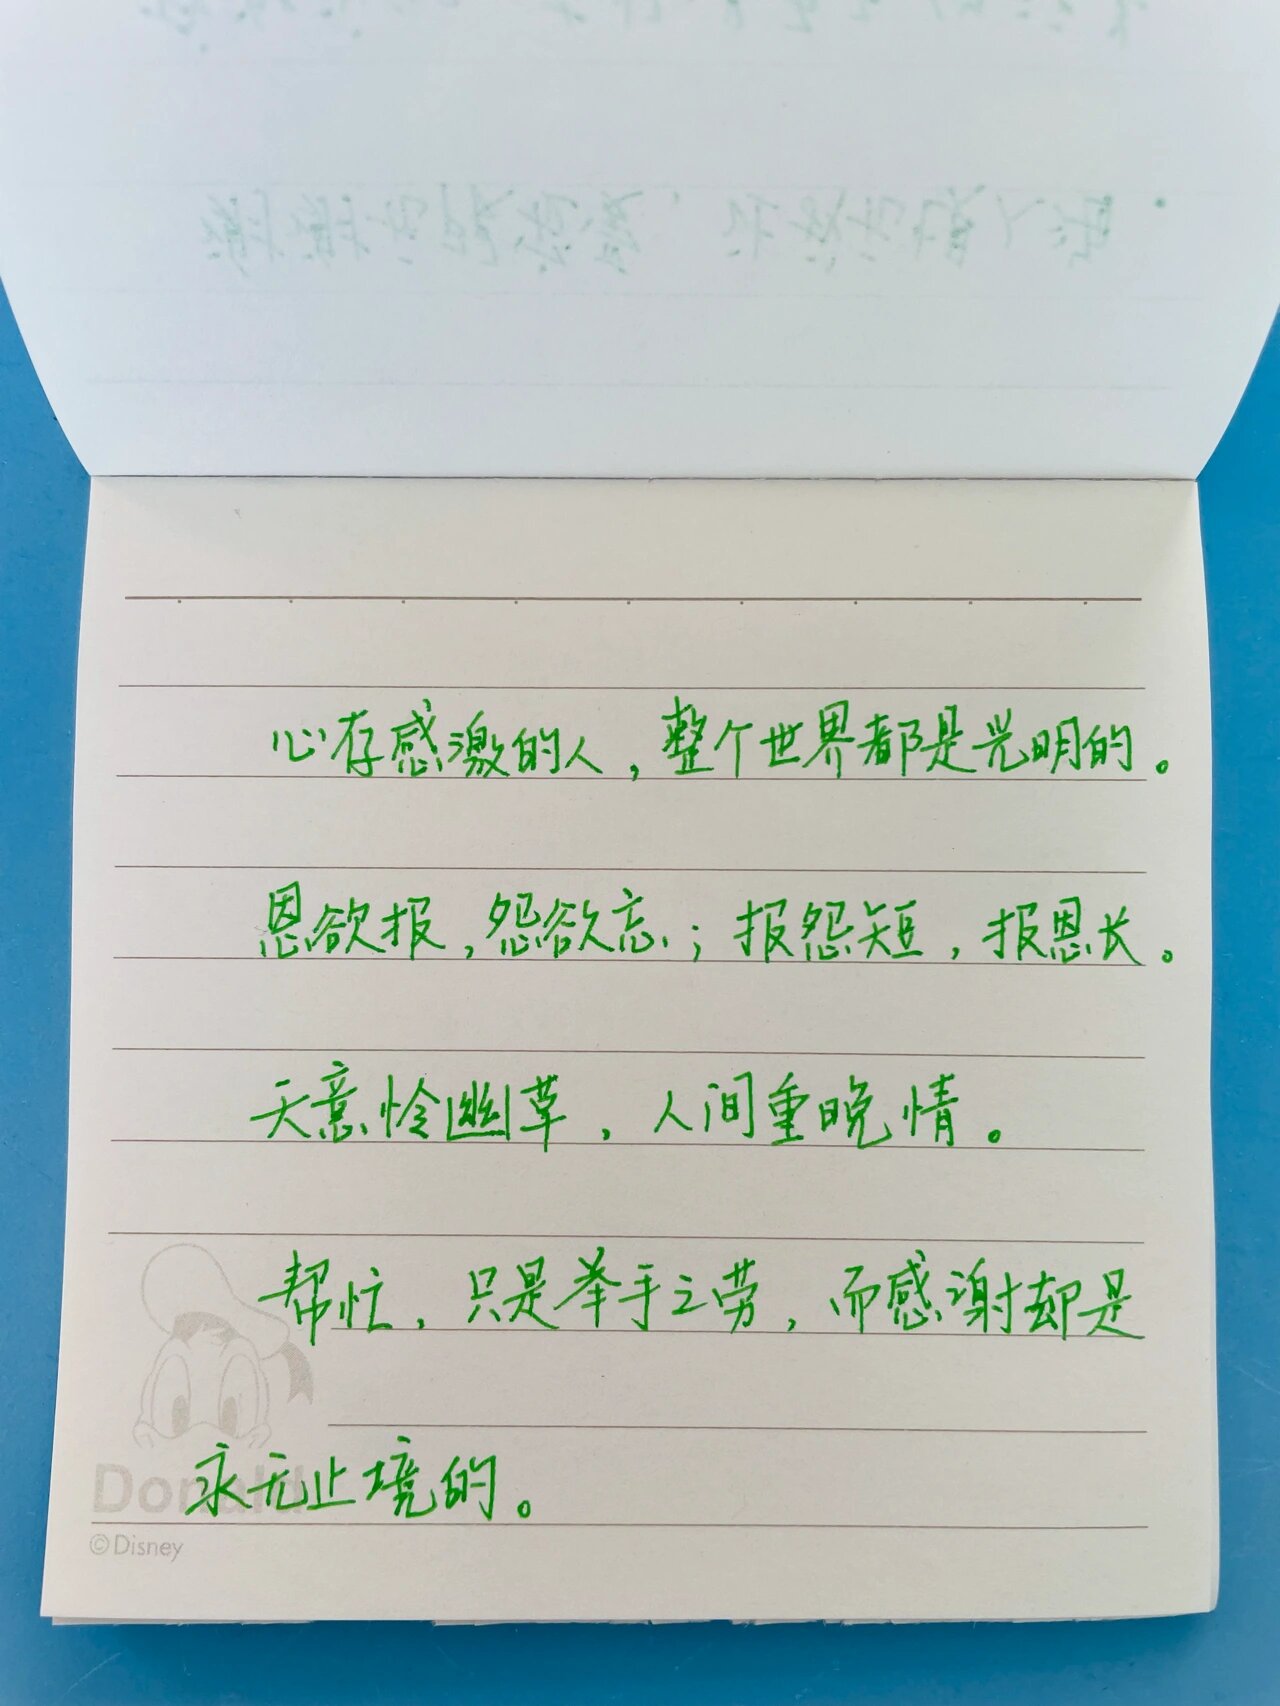 心存感激的人，整个世界都是光明的。
恩欲报，怨欲忘；报怨短，报恩长。
天意怜幽草，人间重晚情。
帮忙，只是举手之劳，而感谢却是
永无止境的。
Donald
©Disney